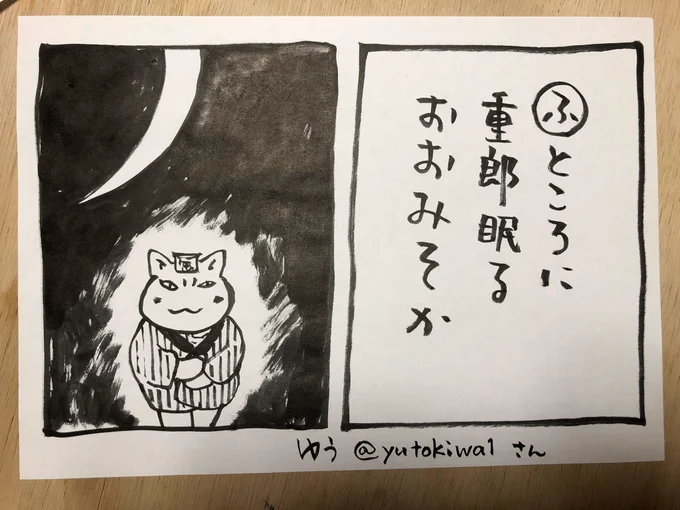 ふところに
重郎眠る
おおみそか
風
ゆう @yutokiwa1 さん